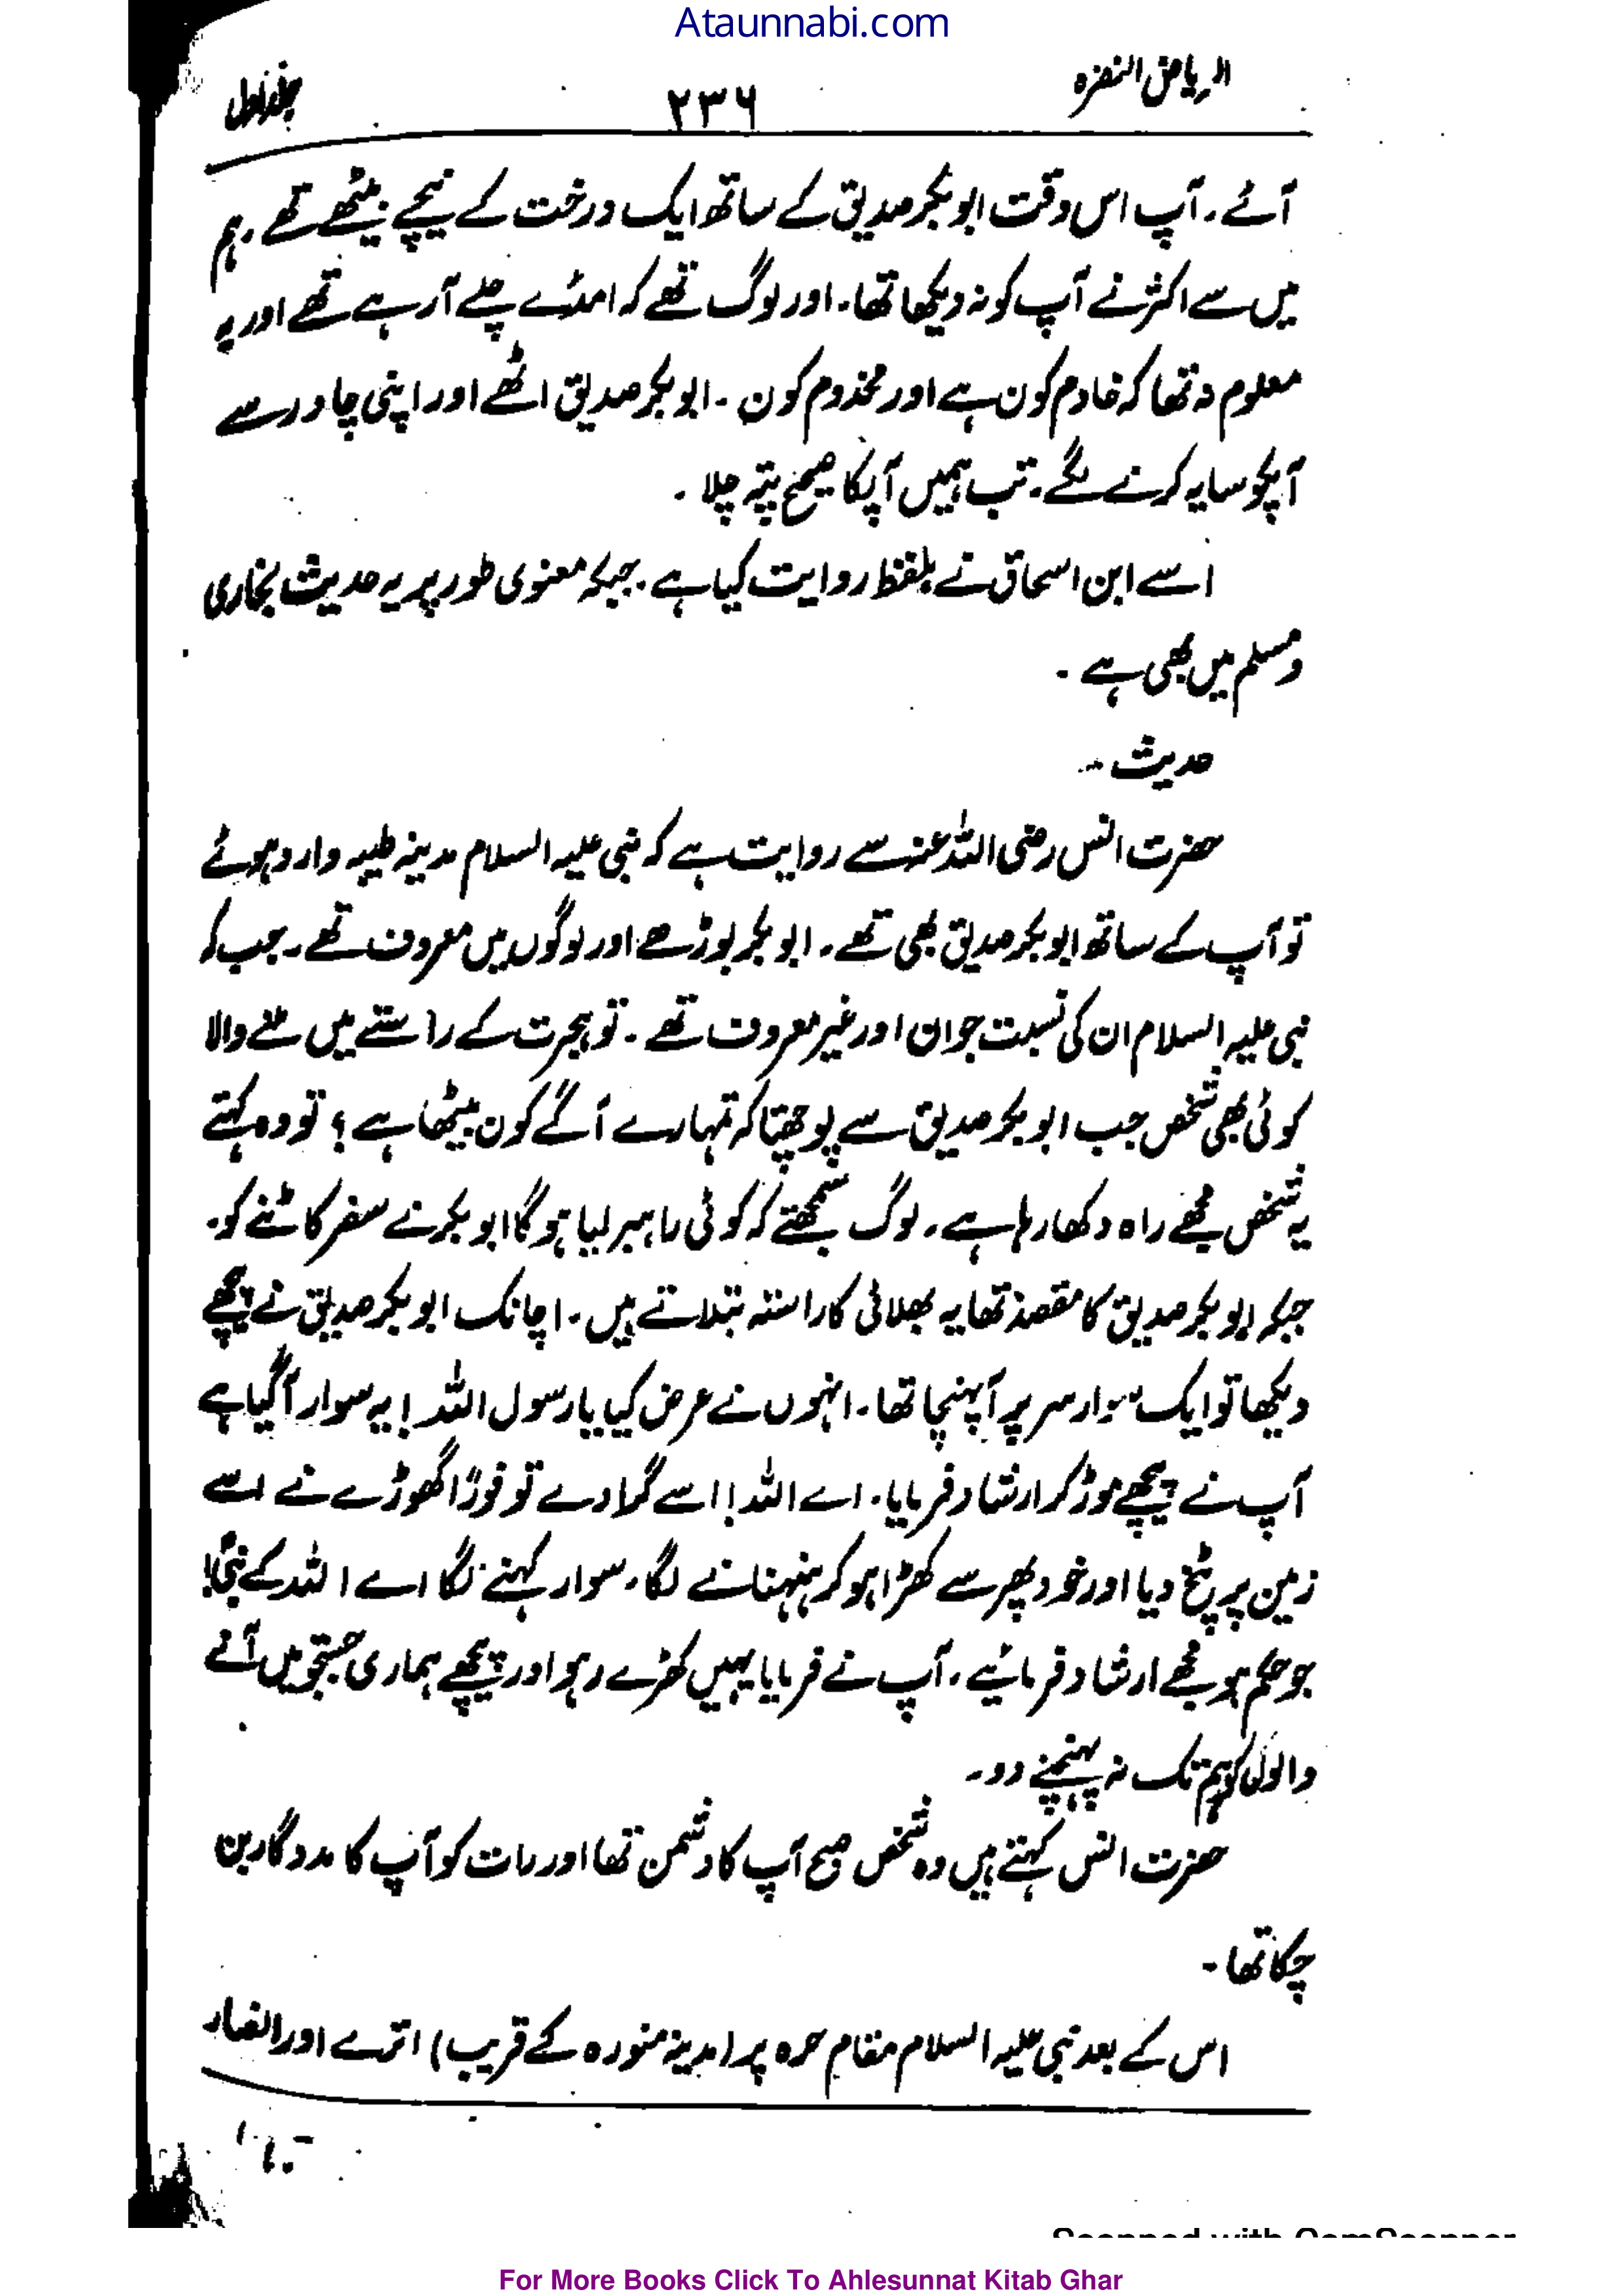 Ataunnabi.com
الریاض النضرہ ۲۳۶ جلد اول
آئے۔ آپ اس وقت ابوبکر صدیق کے ساتھ ایک درخت کے نیچے بیٹھے تھے۔ ہم
میں سے اکثر نے آپ کو نہ دیکھا تھا۔ اور لوگ تھے کہ امڈے چلے آرہے تھے اور یہ
معلوم نہ تھا کہ خادم کون ہے اور مخدوم کون۔ ابوبکر صدیق اٹھے اور اپنی چادر سے
آپکو سایہ کرنے لگے۔ تب ہمیں آپکا صحیح پتہ چلا۔
اسے ابن اسحاق نے بلفظ روایت کیا ہے۔ جبکہ معنوی طور پر یہ حدیث بخاری
ومسلم میں بھی ہے۔
حدیث۔
حضرت انس رضی اللہ عنہ سے روایت ہے کہ نبی علیہ السلام مدینہ طیبہ وارد ہوئے
تو آپ کے ساتھ ابوبکر صدیق بھی تھے۔ ابوبکر بوڑھے اور لوگوں میں معروف تھے۔ جب کہ
نبی علیہ السلام ان کی نسبت جوان اور غیر معروف تھے۔ تو ہجرت کے راستے میں ملنے والا
کوئی بھی شخص جب ابوبکر صدیق سے پوچھتا کہ تمہارے آگے کون بیٹھا ہے؟ تو وہ کہتے
یہ شخص مجھے راہ دکھا رہا ہے۔ لوگ سمجھتے کہ کوئی راہبر لیا ہوگا ابوبکر نے سفر کاٹنے کو۔
جبکہ ابوبکر صدیق کا مقصد تھا یہ بھلائی کا راستہ بتلاتے ہیں۔ اچانک ابوبکر صدیق نے پیچھے
دیکھا تو ایک سوار سر پر آپہنچا تھا۔ انہوں نے عرض کیا یا رسول اللہ! یہ سوار آگیا ہے
آپ نے پیچھے موڑ کر ارشاد فرمایا۔ اے اللہ! اسے گرا دے تو فوراً گھوڑے نے اسے
زمین پر پٹخ دیا اور خود پھر سے کھڑا ہو کر ہنہنانے لگا۔ سوار کہنے لگا اے اللہ کے نبیؐ!
جو حکم ہو مجھے ارشاد فرمائیے۔ آپ نے فرمایا یہیں کھڑے رہو اور پیچھے ہماری جستجو میں آنے
والوں کو ہم تک نہ پہنچنے دو۔
حضرت انس کہتے ہیں وہ شخص صبح آپ کا دشمن تھا اور رات کو آپ کا مددگار بن
چکا تھا۔
اس کے بعد نبی علیہ السلام مقام حرہ پر (مدینہ منورہ کے قریب) اترے اور انصار
Scanned with CamScanner
For More Books Click To Ahlesunnat Kitab Ghar